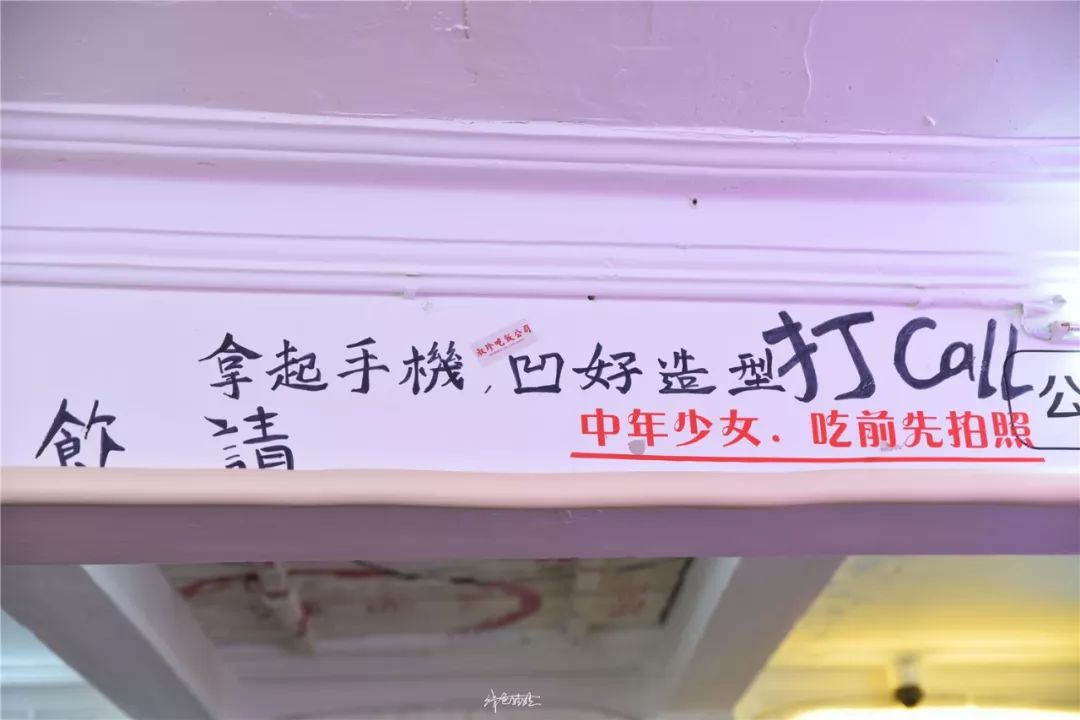 拿起手機,凹好造型打Call
吃飯公司
公
中年少女.吃前先拍照
飲 請